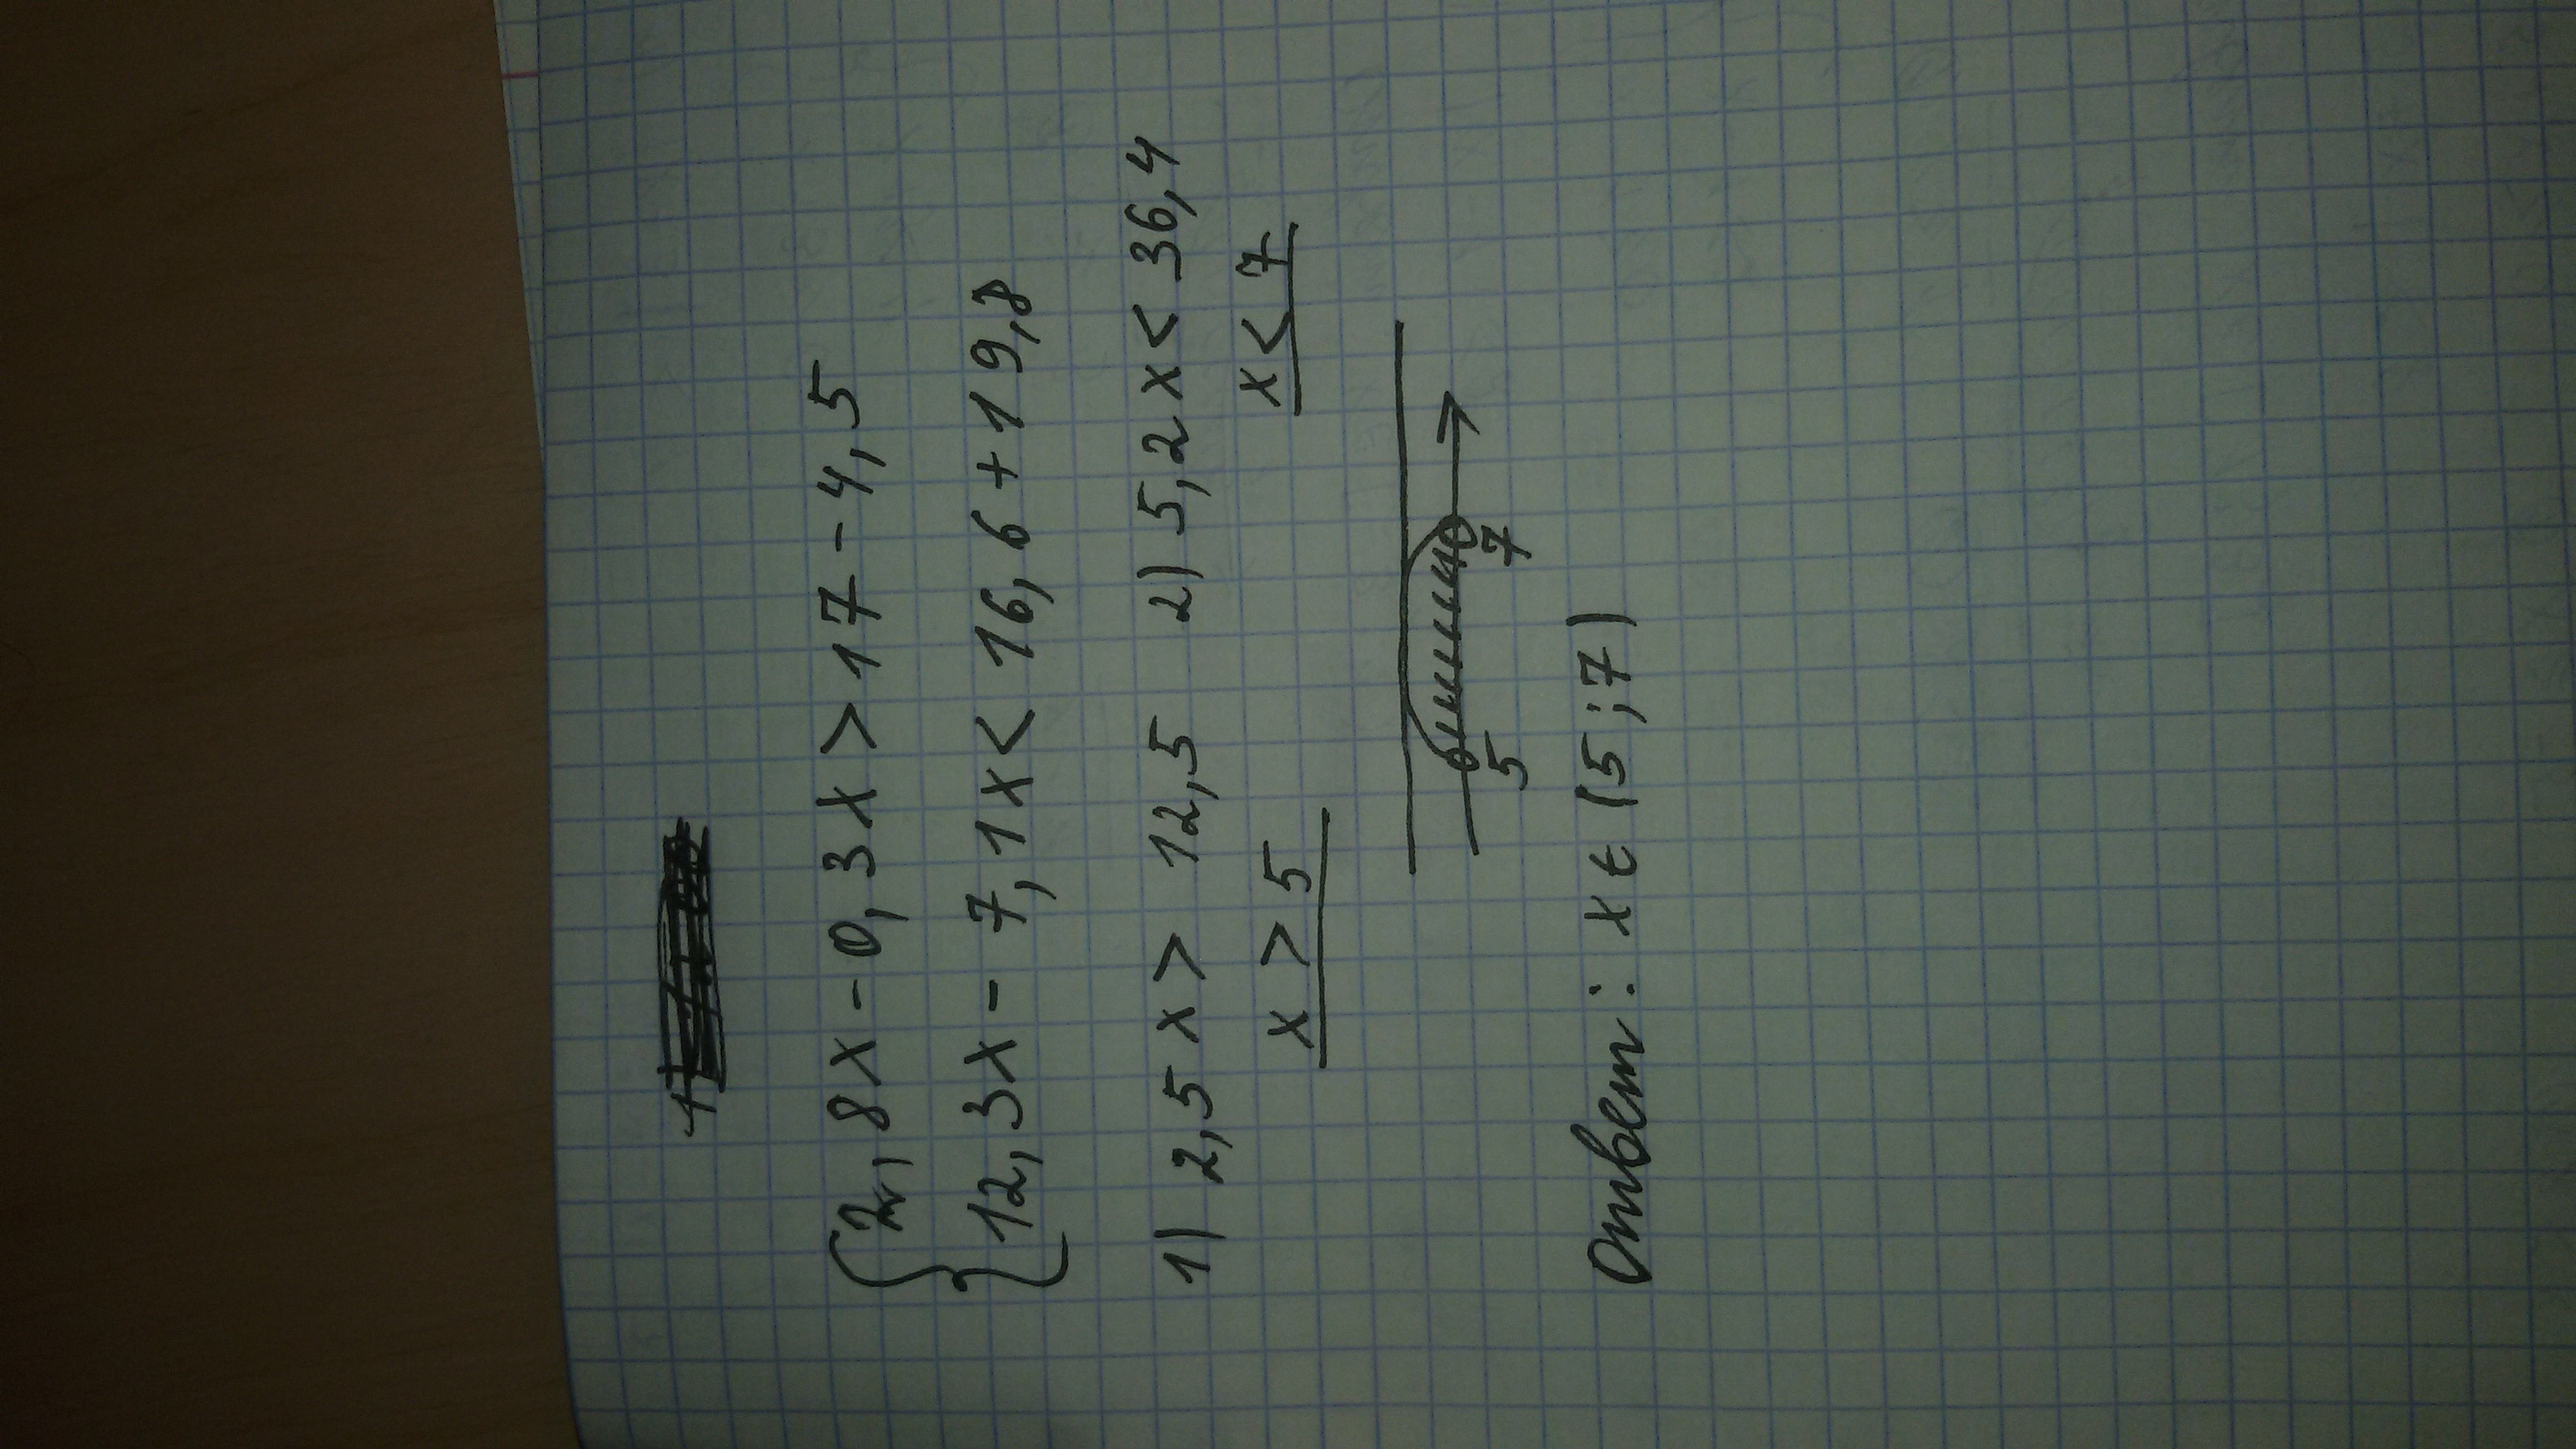 {2,8x-0,3x>17-4,5
{12,3x-7,1x<16,6+19,8
1) 2,5x>12,5 2) 5,2x<36,4
x>5 x<7
5 7
Ответ: x ∈ (5;7)